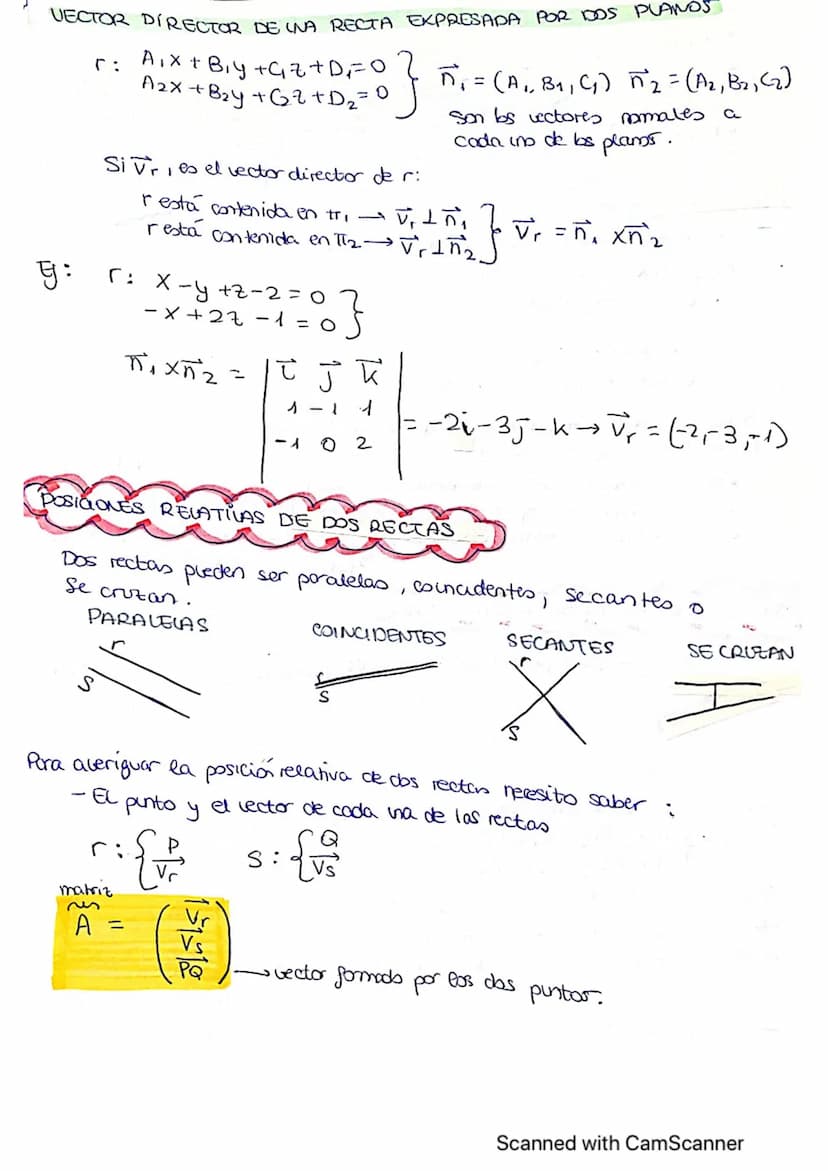 VECTOR DIRECTOR DE UNA RECTA EXPRESADA POR DOS PLANOS
r: A₁x + B₁y + C₁z + D₁ = 0 } n⃗₁ = (A₁, B₁, C₁) n⃗₂ = (A₂, B₂, C₂)
A₂x + B₂y + C₂z + D₂ = 0
son los vectores normales a
cada uno de los planos.
Si v⃗r, es el vector director de r:
r está contenida en π₁ → v⃗r ⊥ n⃗₁ } v⃗r = n⃗₁ x n⃗₂
r está contenida en π₂ → v⃗r ⊥ n⃗₂
Ej: r: x - y + z - 2 = 0 }
-x + 2z - 1 = 0
n⃗₁ x n⃗₂ = | i⃗ j⃗ k⃗ |
1 -1 1
-1 0 2
= -2i - 3j - k → v⃗r = (-2, -3, -1)
POSICIONES RELATIVAS DE DOS RECTAS
Dos rectas pueden ser paralelas, coincidentes, secantes o
se cruzan.
PARALELAS COINCIDENTES SECANTES SE CRUZAN
r r r
s s s
Para averiguar la posición relativa de dos rectas necesito saber:
- El punto y el vector de cada una de las rectas
r: { P s: { Q
v⃗r v⃗s
matriz
A = ( v⃗r
v⃗s
PQ⃗ ) → vector formado por los dos puntos.
Scanned with CamScanner